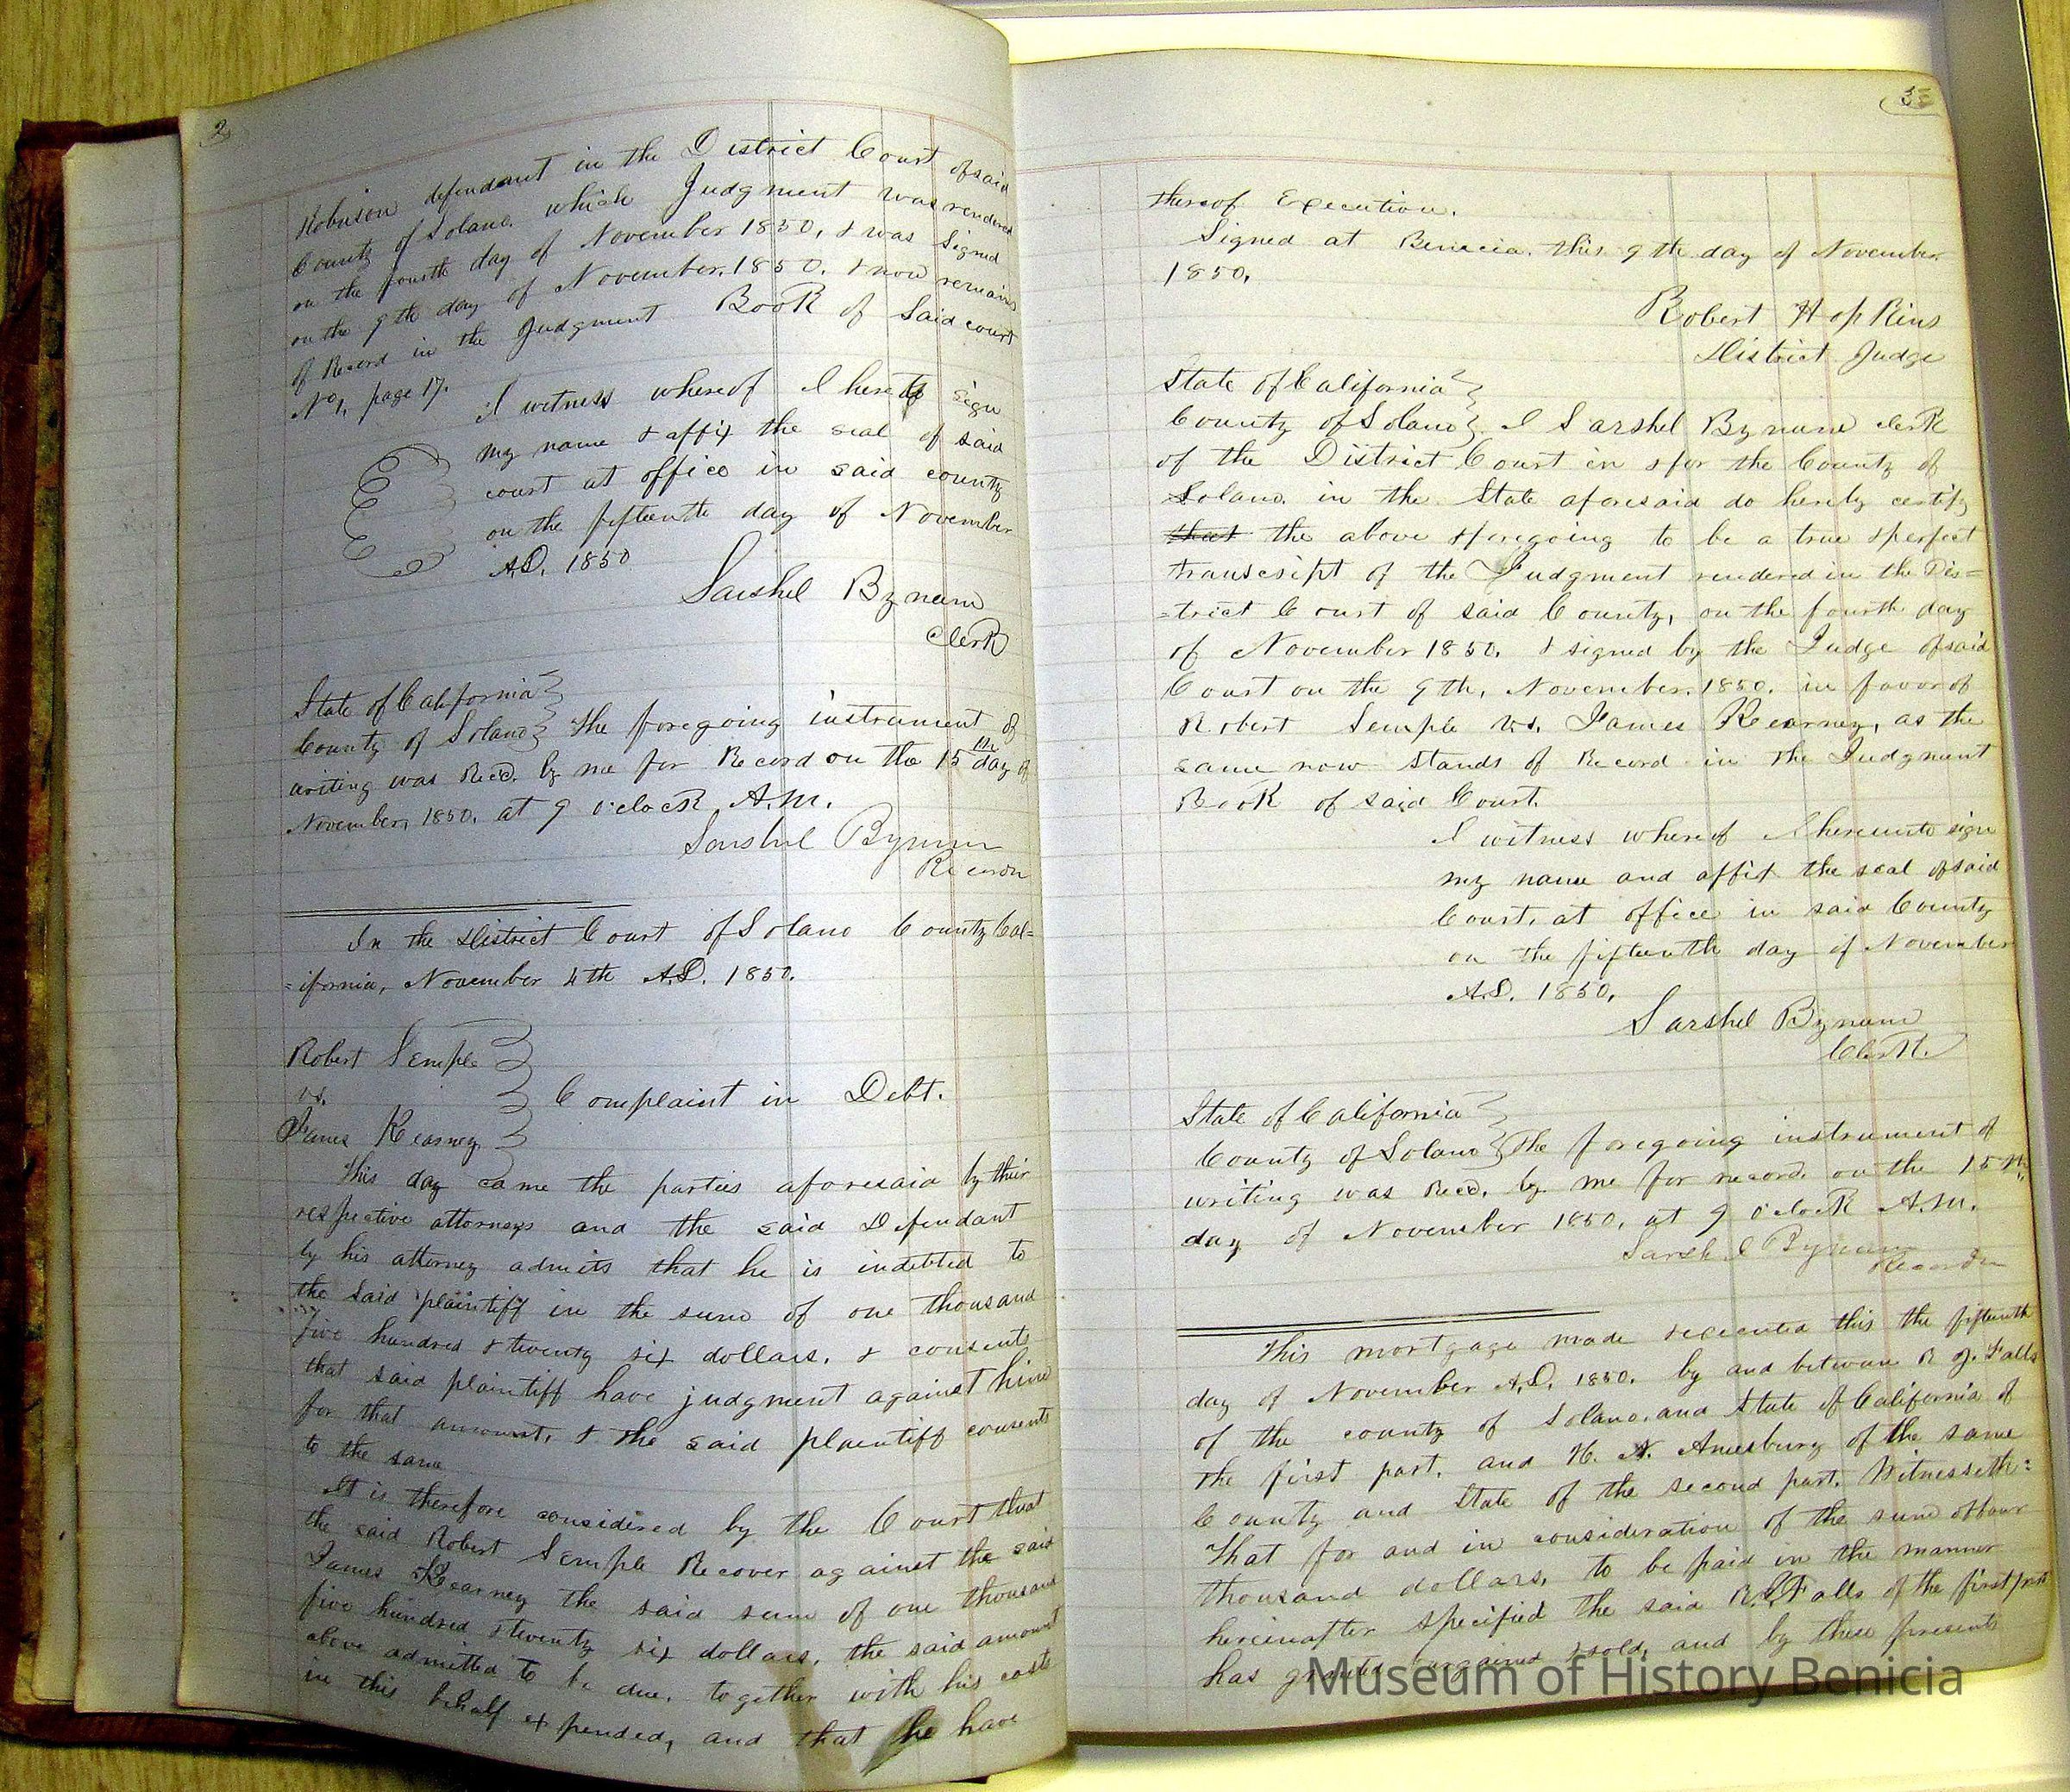 2
Robinson defendant in the District Court of said
County of Solano. which Judgment was rendered
on the fourth day of November 1850, & was Signed
on the 9th day of November. 1850. & now remains
of Record in the Judgment Book of Said court
No 1, page 17.
I witness whereof I hereto sign
my name & affix the seal of said
court at office in said county
on the fifteenth day of November
A.D. 1850
Sarshel Bynum
Clerk
State of California
County of Solano The foregoing instrument of
writing was Recd. by me for Record on the 15th day of
November, 1850. at 9 o'clock A.M.
Sarshel Bynum
Recorder
In the District Court of Solano County Cal=
=ifornia, November 4th A.D. 1850.
Robert Semple
vs.
James Kearney
Complaint in Debt.
This day came the parties aforesaid by their
respective attorneys and the said Defendant
by his attorney admits that he is indebted to
the said plaintiff in the sum of one thousand
five hundred & twenty six dollars, & consents
that said plaintiff have judgment against him
for that amount, & the said plaintiff consents
to the same
It is therefore considered by the Court that
the said Robert Semple Recover against the said
James Kearney the said sum of one thousand
five hundred & twenty six dollars, the said amount
above admitted to be due, together with his costs
in this behalf expended, and that he have
3
thereof Execution.
Signed at Benecia. this 9th day of November
1850.
Robert Hopkins
District Judge
State of California
County of Solano I Sarshel Bynum clerk
of the District Court in & for the County of
Solano. in the State aforesaid do hereby certify
that the above & foregoing to be a true & perfect
transcript of the Judgment rendered in the Dis=
=trict Court of said County, on the fourth day
of November 1850. & signed by the Judge of said
Court on the 9th, November. 1850. in favor of
Robert Semple vs. James Kearney, as the
same now Stands of Record in the Judgment
Book of said Court.
I witness whereof I hereunto sign
my name and affix the seal of said
Court. at office in said County
on the fifteenth day of November
A.D. 1850,
Sarshel Bynum
Clerk.
State of California
County of Solano The foregoing instrument of
writing was Recd. by me for record. on the 15th
day of November 1850, at 9 o'clock A.M.
Sarshel Bynum
Recorder
This mortgage made & executed this the fifteenth
day of November A.D. 1850. by and between R. J. Falls
of the county of Solano. and State of California of
the first part, and H. A. Amesbury of the same
County and State of the second part. Witnesseth:
That for and in consideration of the sum of four
thousand dollars, to be paid in the manner
hereinafter specified the said R. J. Falls of the first part
has granted bargained & sold, and by these presents
Museum of History Benicia